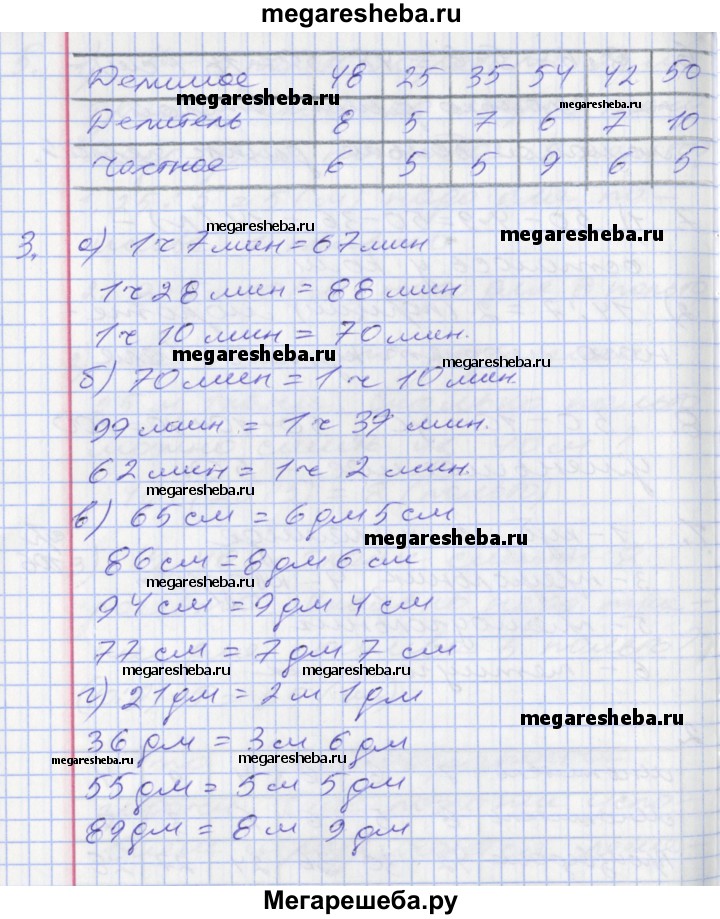 megaresheba.ru
Делимое 48 25 35 54 42 50
megaresheba.ru
megaresheba.ru
Делитель 8 5 7 6 7 10
Частное 6 5 5 9 6 5
megaresheba.ru
megaresheba.ru
3. а) 1 ч 7 мин = 67 мин
1 ч 28 мин = 88 мин
1 ч 10 мин = 70 мин.
megaresheba.ru
megaresheba.ru
б) 70 мин = 1 ч 10 мин.
99 мин = 1 ч 39 мин.
62 мин = 1 ч 2 мин.
megaresheba.ru
в) 65 см = 6 дм 5 см
megaresheba.ru
86 см = 8 дм 6 см
megaresheba.ru
94 см = 9 дм 4 см
77 см = 7 дм 7 см
megaresheba.ru megaresheba.ru
г) 21 дм = 2 м 1 дм
megaresheba.ru
36 дм = 3 м 6 дм
megaresheba.ru megaresheba.ru
55 дм = 5 м 5 дм
89 дм = 8 м 9 дм
Мегарешеба.ру